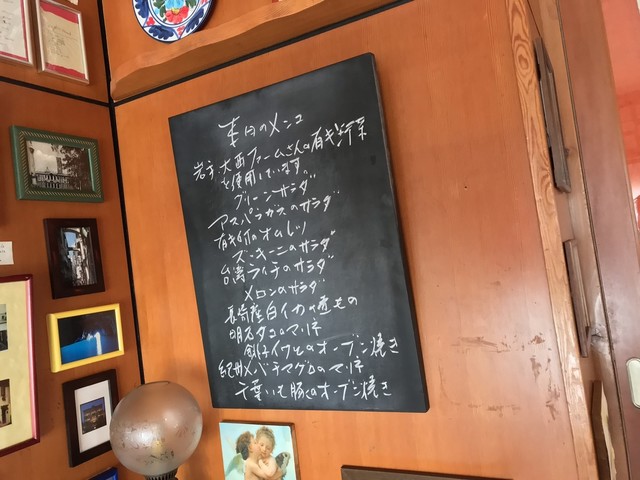 本日のメンユ
岩手、大西ファームさんの有キ野菜
を使用しています。
グリーンサラダ
アスパラガスのサラダ
有キ卵のオムレツ
ズッキーニのサラダ
台湾ライチのサラダ
メロンのサラダ
長崎産白イカの
明石タコのマリネ
銚子イワシのオーブン焼き
紀州メバチマグロのマリネ
千葉いも豚のオーブン焼き